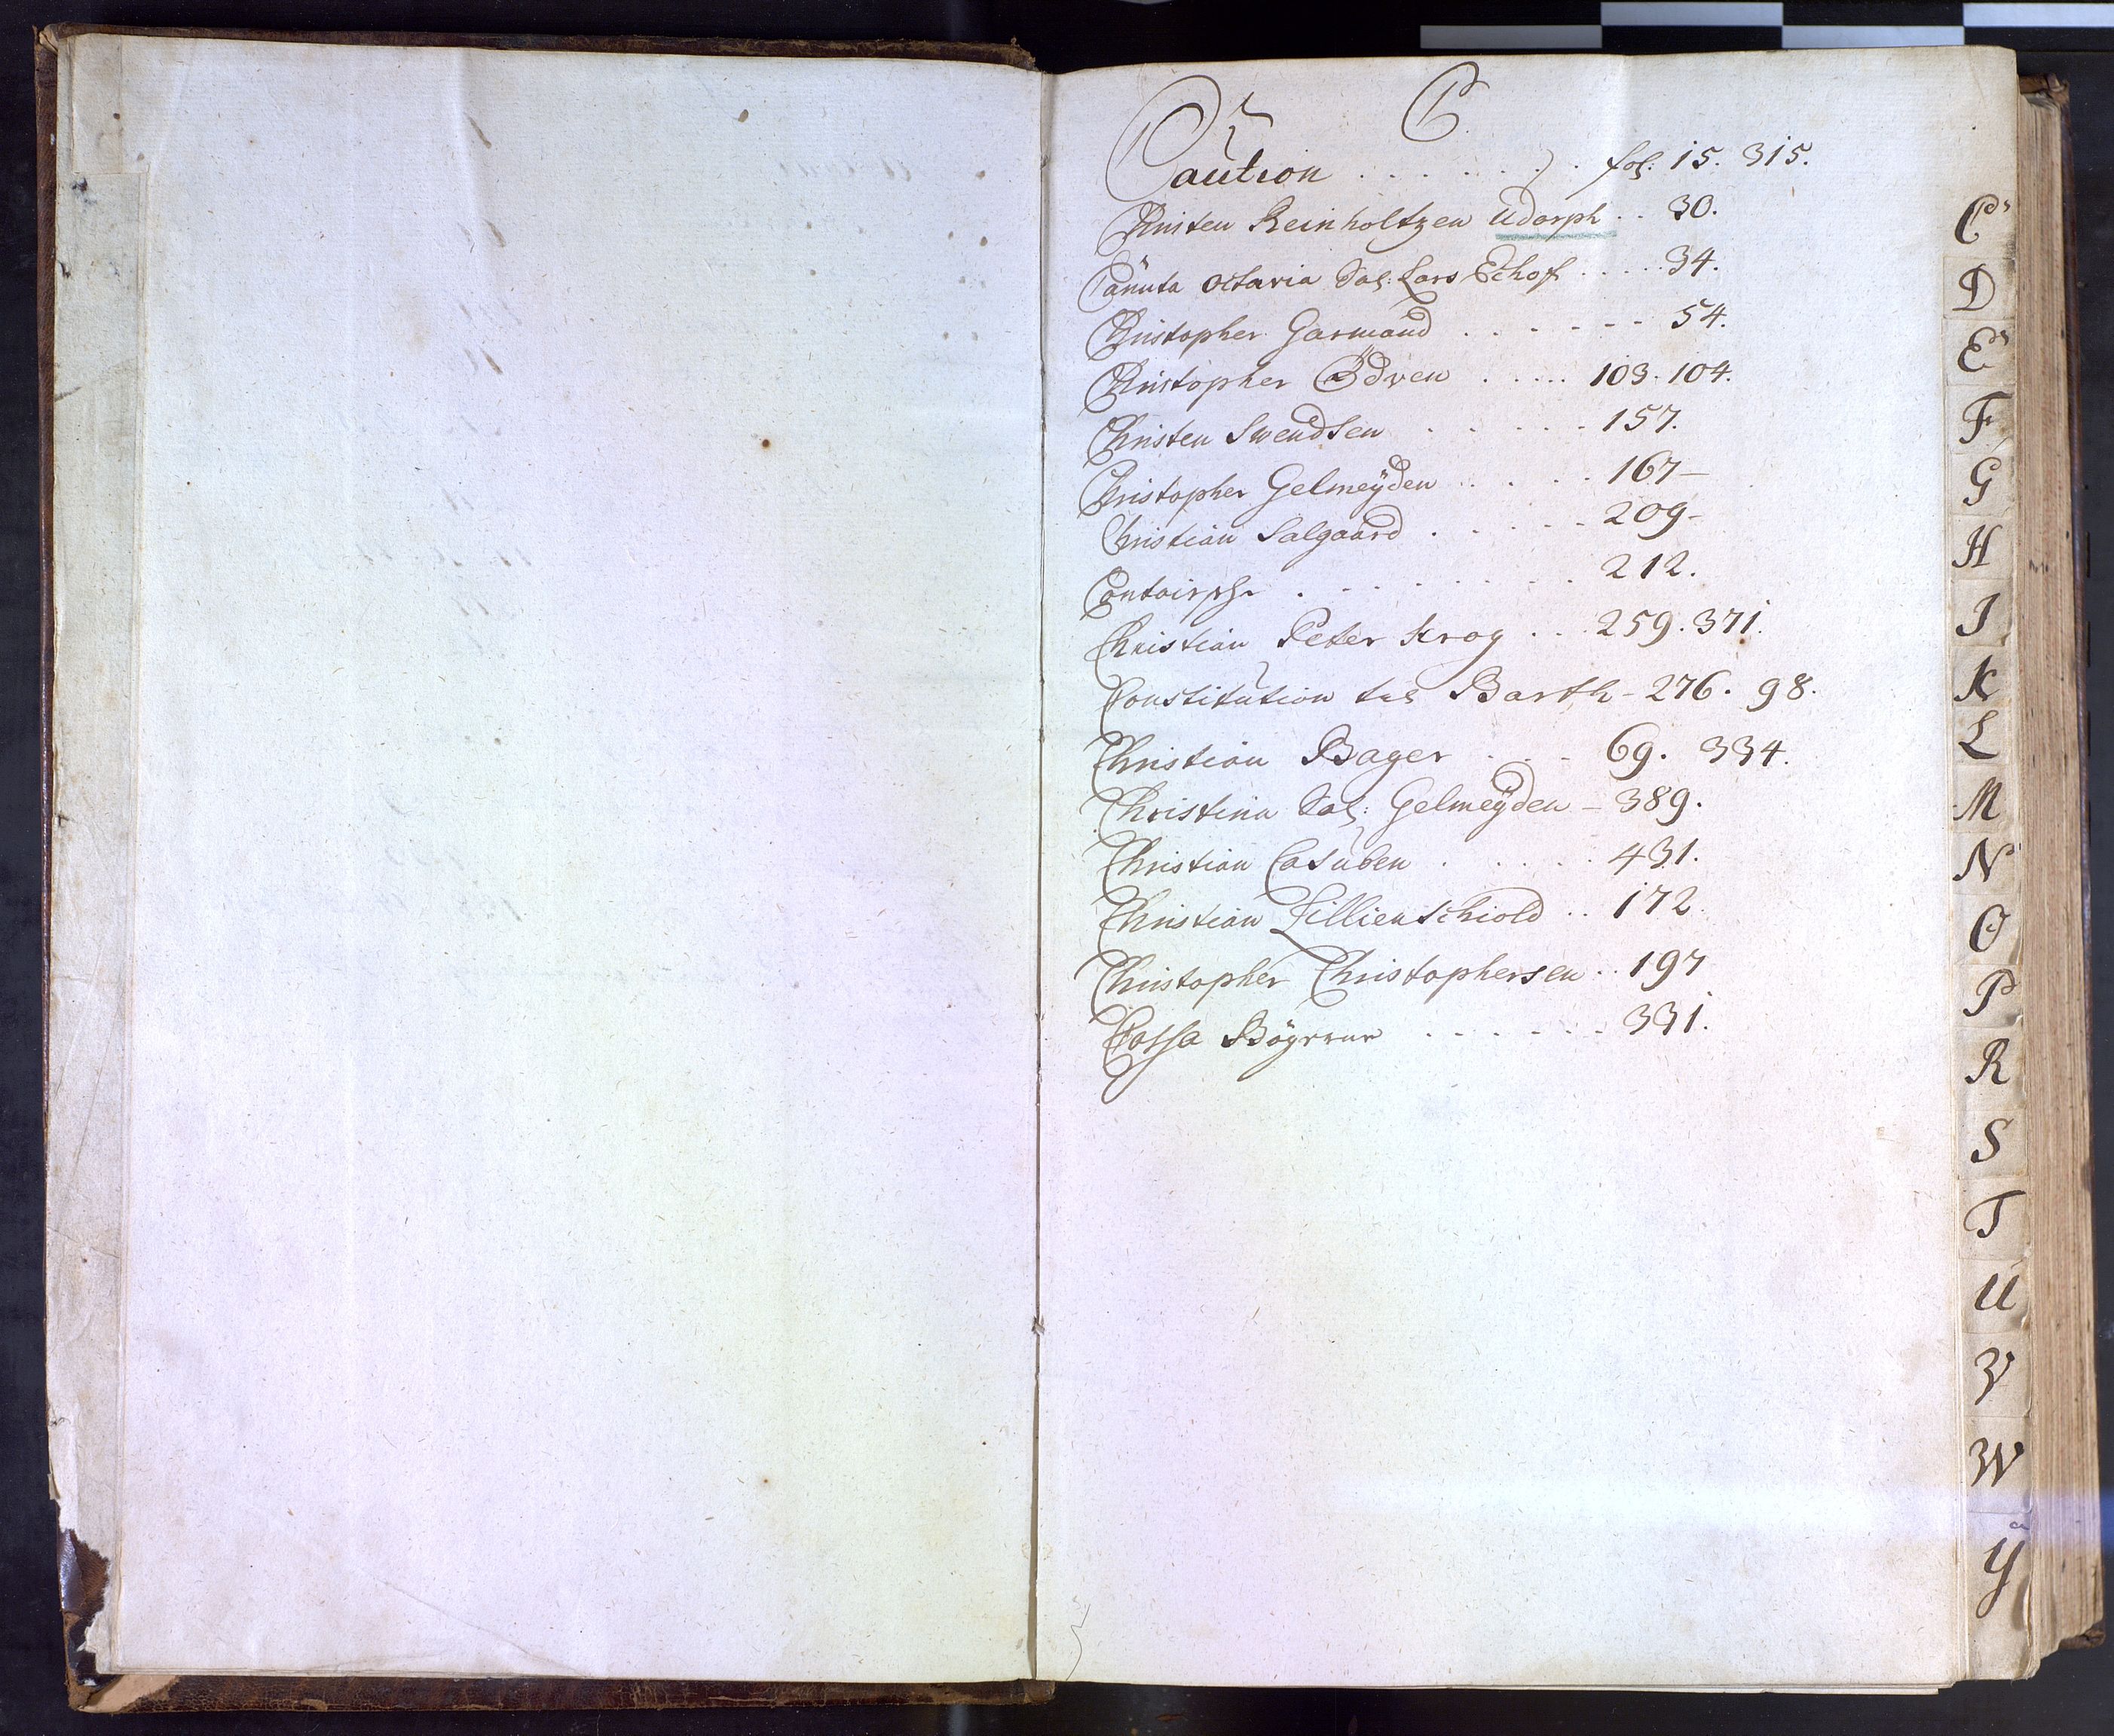 C
Caution . . . . . . . fol: 15. 315.
Christen Reinholtzen Udorph . . 30.
Canuta Octavia Sal: Lars Echof . . . . . 34.
Christopher Garmand . . . - - - 54.
Christopher Ödven . . . . . 103. 104.
Christen Swendsen . . . . . 157.
Christopher Gelmeÿden . . . . 167 -
Christian Salgaard . . . . . 209 -
. . . . . . . . 212.
Christian Peter Krog . . . 259. 371.
Constitution til Barth - 276. 98.
Christian Bager . . . 69. 334.
Christina Sal: Gelmeÿden - 389.
Christian Casuben . . . . . 431.
Christian Lillienschiold . . 172.
Christopher Christophersen . . 197
Cassa . . . . . . . 331.
C
D
E
F
G
H
I
K
L
M
N
O
P
R
S
T
U
V
W
Y